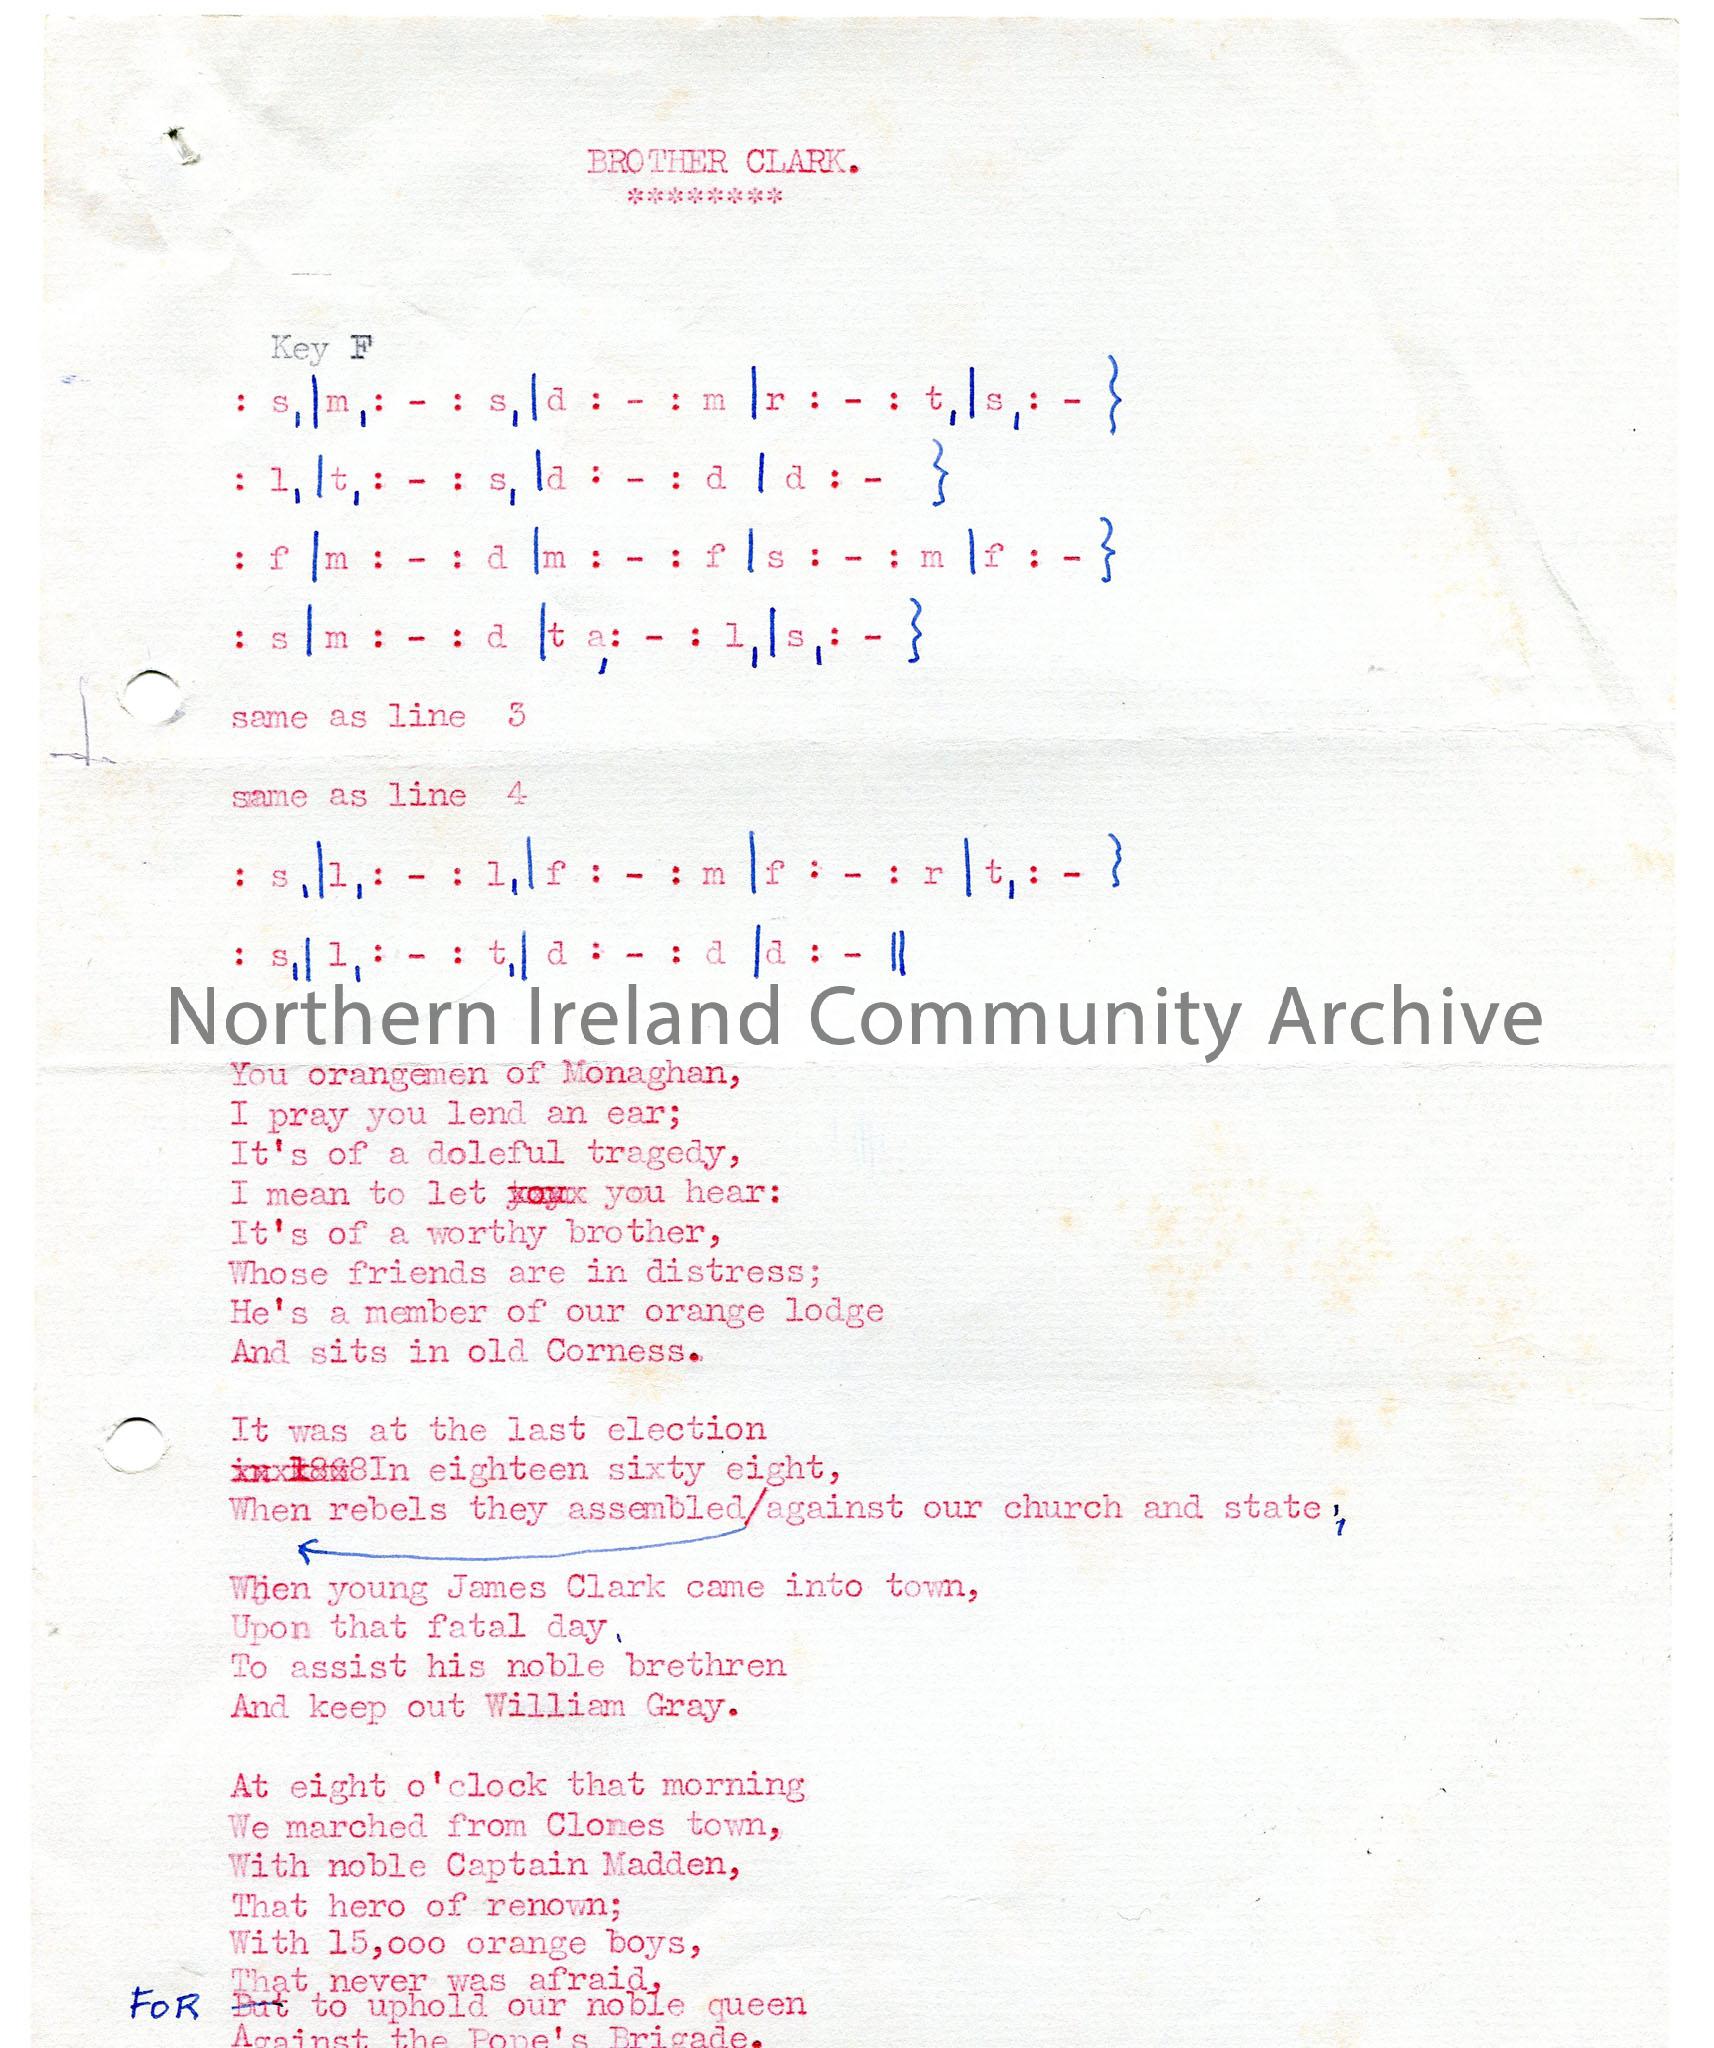 BROTHER CLARK.
********
Key F
: s,|m,: - : s,|d : - : m |r : - : t,|s,: - }
: l,|t,: - : s,|d : - : d | d : - }
: f |m : - : d |m : - : f |s : - : m |f : - }
: s |m : - : d |t a,: - : l,|s,: - }
same as line 3
same as line 4
: s,|l,: - : l,|f : - : m |f : - : r |t,: - }
: s,| l,: - : t,| d : - : d |d : - ||
Northern Ireland Community Archive
You orangemen of Monaghan,
I pray you lend an ear;
It's of a doleful tragedy,
I mean to let you hear:
It's of a worthy brother,
Whose friends are in distress;
He's a member of our orange lodge
And sits in old Corness.
It was at the last election
in 1868In eighteen sixty eight,
When rebels they assembled/against our church and state;
When young James Clark came into town,
Upon that fatal day,
To assist his noble brethren
And keep out William Gray.
At eight o'clock that morning
We marched from Clones town,
With noble Captain Madden,
That hero of renown;
With 15,000 orange boys,
That never was afraid,
FOR But to uphold our noble queen
Against the Pope's Brigade.